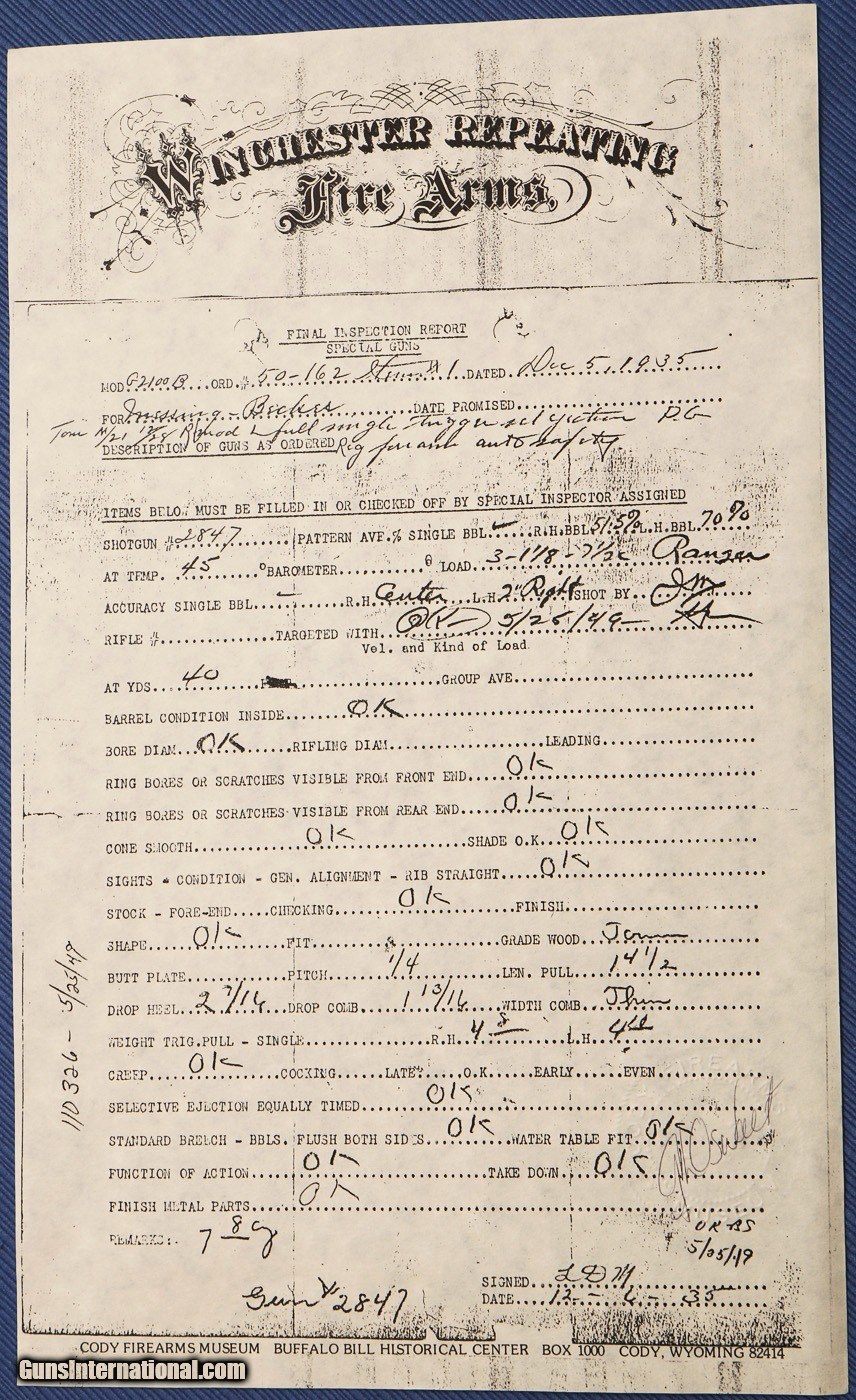 WINCHESTER REPEATING
Fire Arms.
FINAL INSPECTION REPORT
SPECIAL GUNS
MOD. G2100B...ORD.# 50-162 #1.DATED. Dec 5, 1935
FOR............DATE PROMISED............
full single trigger sel ejection P.G
DESCRIPTION OF GUNS AS ORDERED Reg forearm auto safety
ITEMS BELOW MUST BE FILLED IN OR CHECKED OFF BY SPECIAL INSPECTOR ASSIGNED
SHOTGUN # 2847............PATTERN AVE.% SINGLE BBL......R.H.BBL 51.5%.L.H.BBL. 70%
AT TEMP. 45......°BAROMETER............LOAD. 3-1 1/8 - 7 1/2 C Ranger
ACCURACY SINGLE BBL. - ........R.H. Center...L.H. 2" Right SHOT BY. JM
RIFLE #............TARGETED WITH. OK 5/25/49
Vel. and Kind of Load
AT YDS. 40............GROUP AVE............
BARREL CONDITION INSIDE...... OK
BORE DIAM... OK......RIFLING DIAM............LEADING............
RING BORES OR SCRATCHES VISIBLE FROM FRONT END.... OK
RING BORES OR SCRATCHES VISIBLE FROM REAR END.... OK
CONE SMOOTH............ OK............SHADE O.K... OK
SIGHTS - CONDITION - GEN. ALIGNMENT - RIB STRAIGHT.... OK
STOCK - FORE-END.....CHECKING...... OK............FINISH............
SHAPE.... OK......FIT............GRADE WOOD.
BUTT PLATE............PITCH. 1/4............LEN. PULL.. 14 1/2
DROP HEEL.. 2 7/16..DROP COMB... 1 13/16....WIDTH COMB. Thin
WEIGHT TRIG.PULL - SINGLE............R.H. 4 8......L.H.
CREEP.... OK....COCKING......LATE?.....O.K......EARLY......EVEN......
SELECTIVE EJECTION EQUALLY TIMED...... OK
STANDARD BREECH - BBLS. FLUSH BOTH SIDES.. OK......WATER TABLE FIT. OK
FUNCTION OF ACTION.... OK............TAKE DOWN.... OK
FINISH METAL PARTS.... OK
REMARKS:. 7 8
OK
5/25/49
110326 - 5/25/49
SIGNED... LDM
DATE.... 12 - 6 - 35
Gun # 2847
CODY FIREARMS MUSEUM BUFFALO BILL HISTORICAL CENTER BOX 1000 CODY, WYOMING 82414
GunsInternational.com